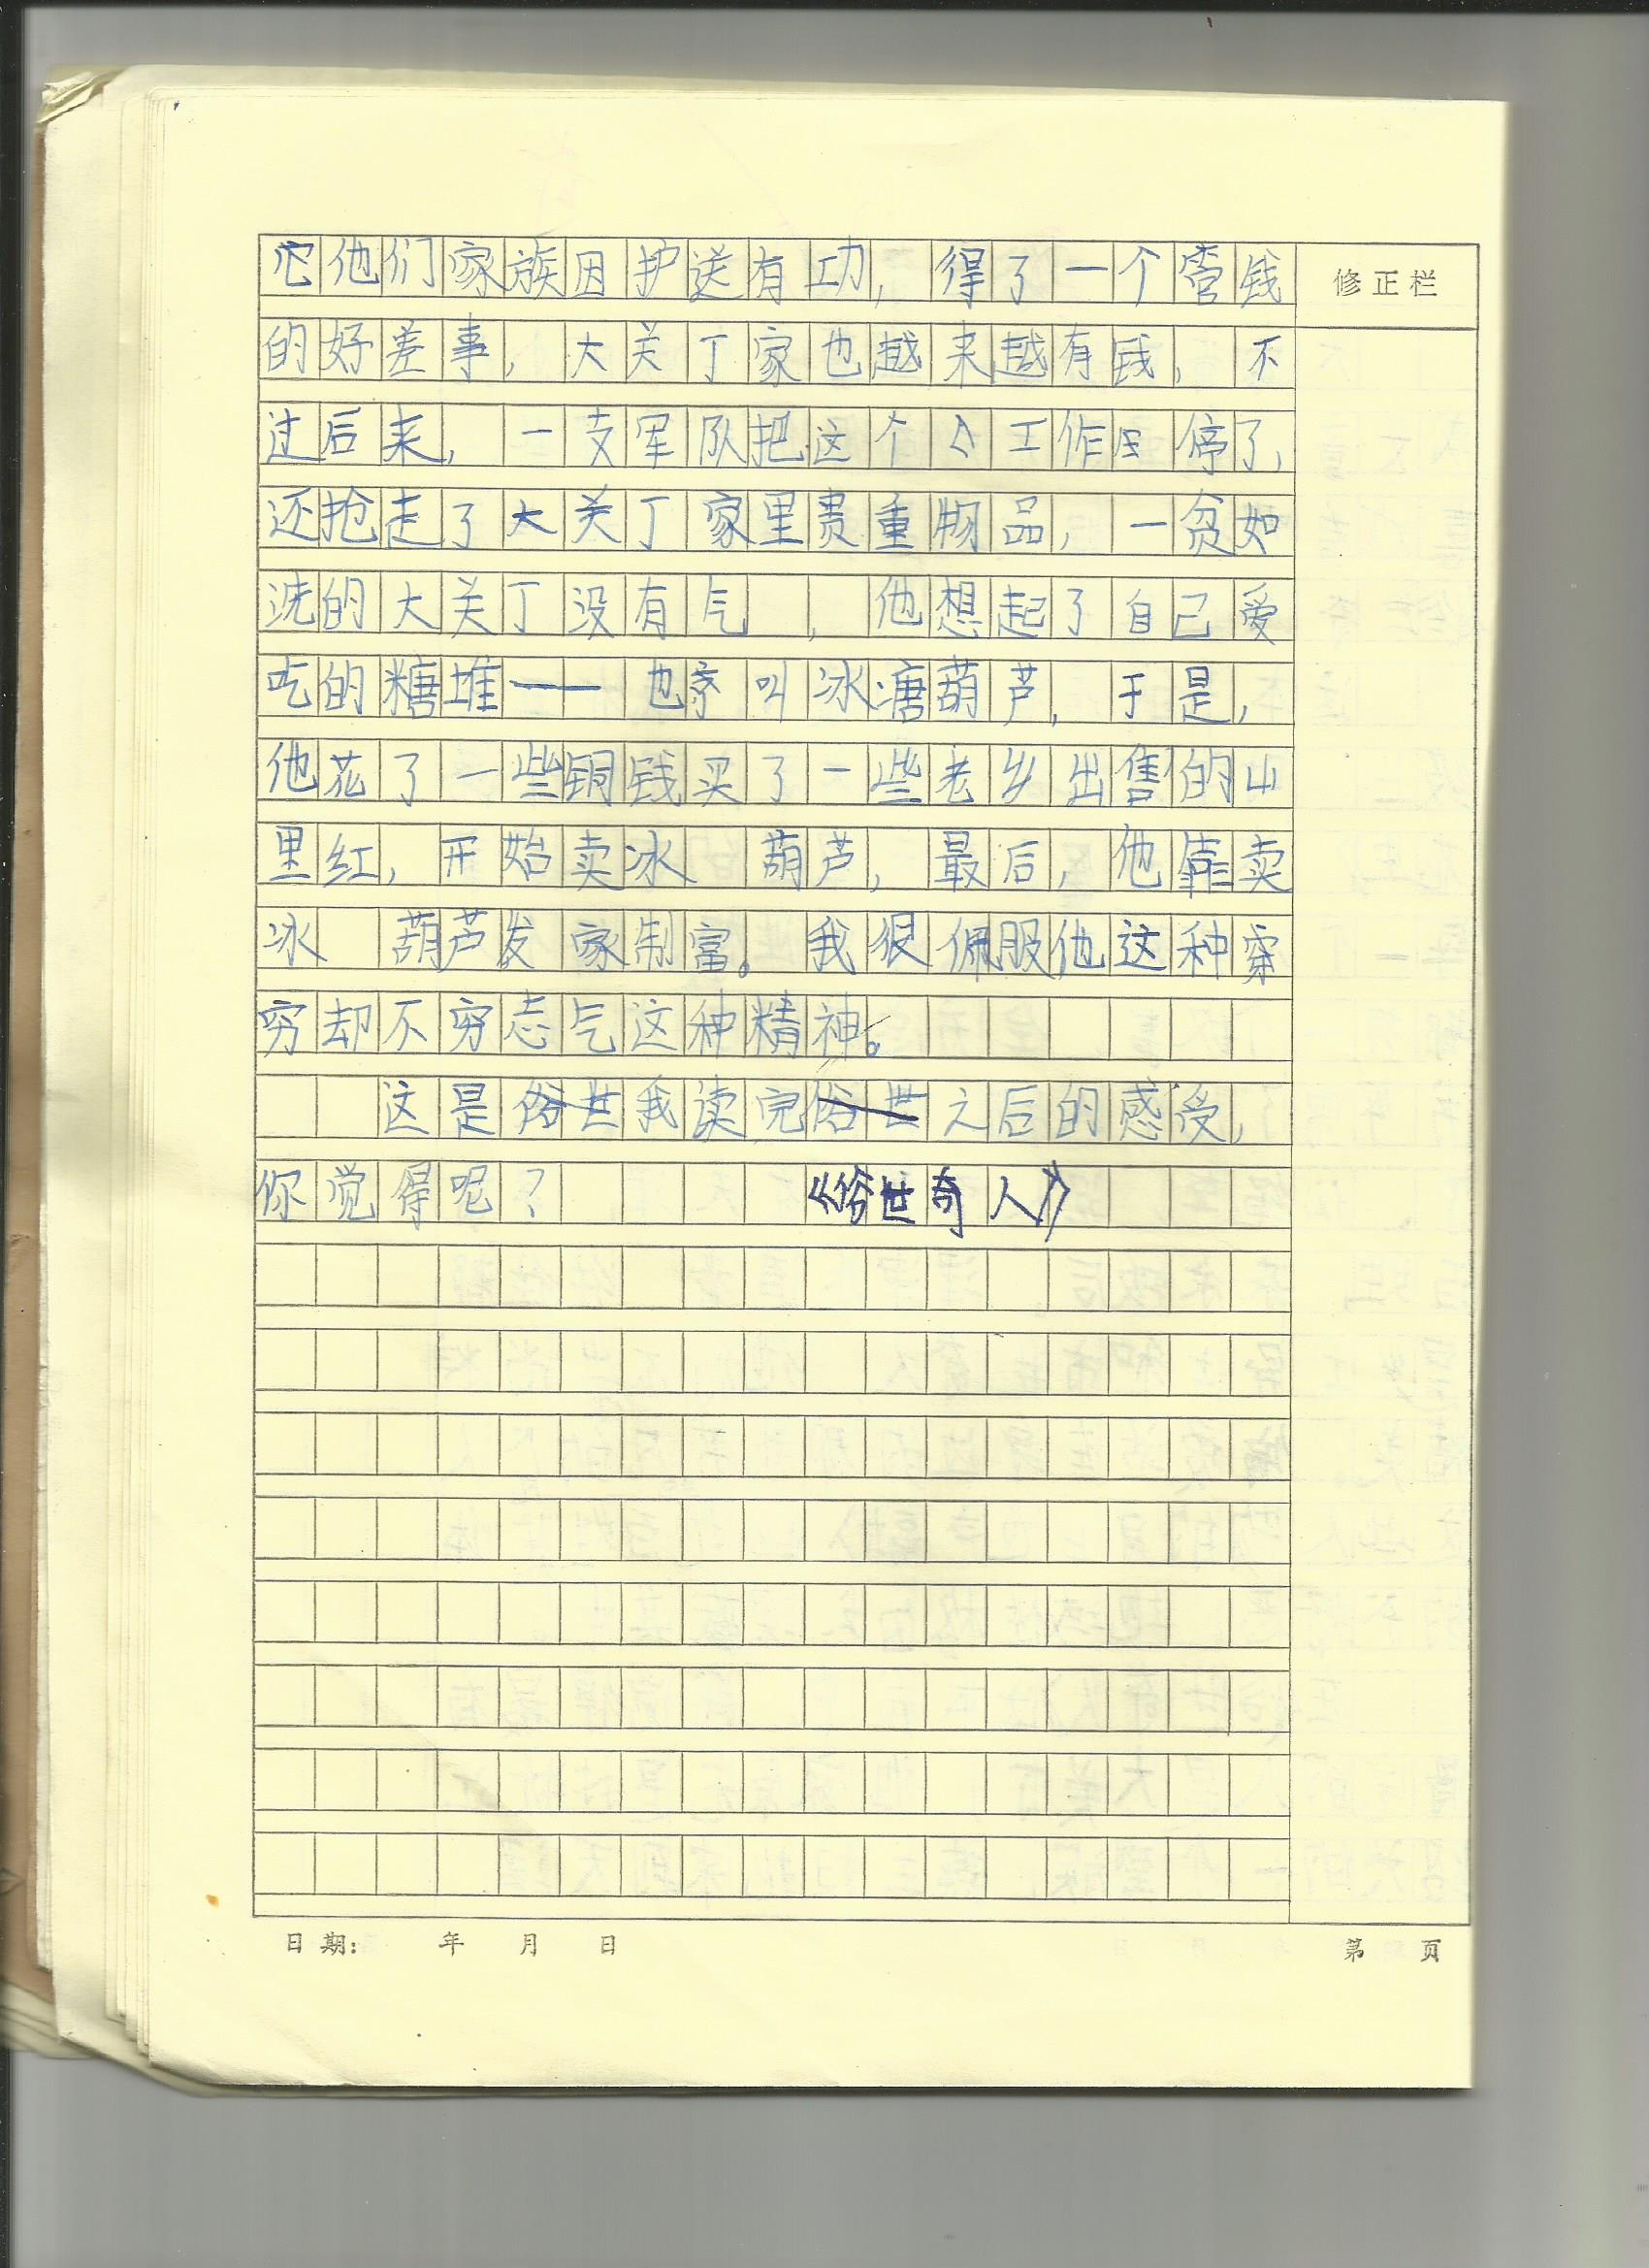 他们家族因护送有功，得了一个管钱
修正栏
的好差事，大关丁家也越来越有钱，不
过后来，一支军队把这个工作停了，
还抢走了大关丁家里贵重物品，一贫如
洗的大关丁没有气，他想起了自己爱
吃的糖堆——也叫冰塘葫芦，于是，
他花了一些铜钱买了一些老乡出售的山
里红，开始卖冰 葫芦，最后，他靠卖
冰 葫芦发家制富。我很佩服他这种穿
穷却不穷志气这种精神。
这是俗世我读完俗世之后的感受，
你觉得呢？ 《俗世奇人》
日期： 年 月 日 第 页